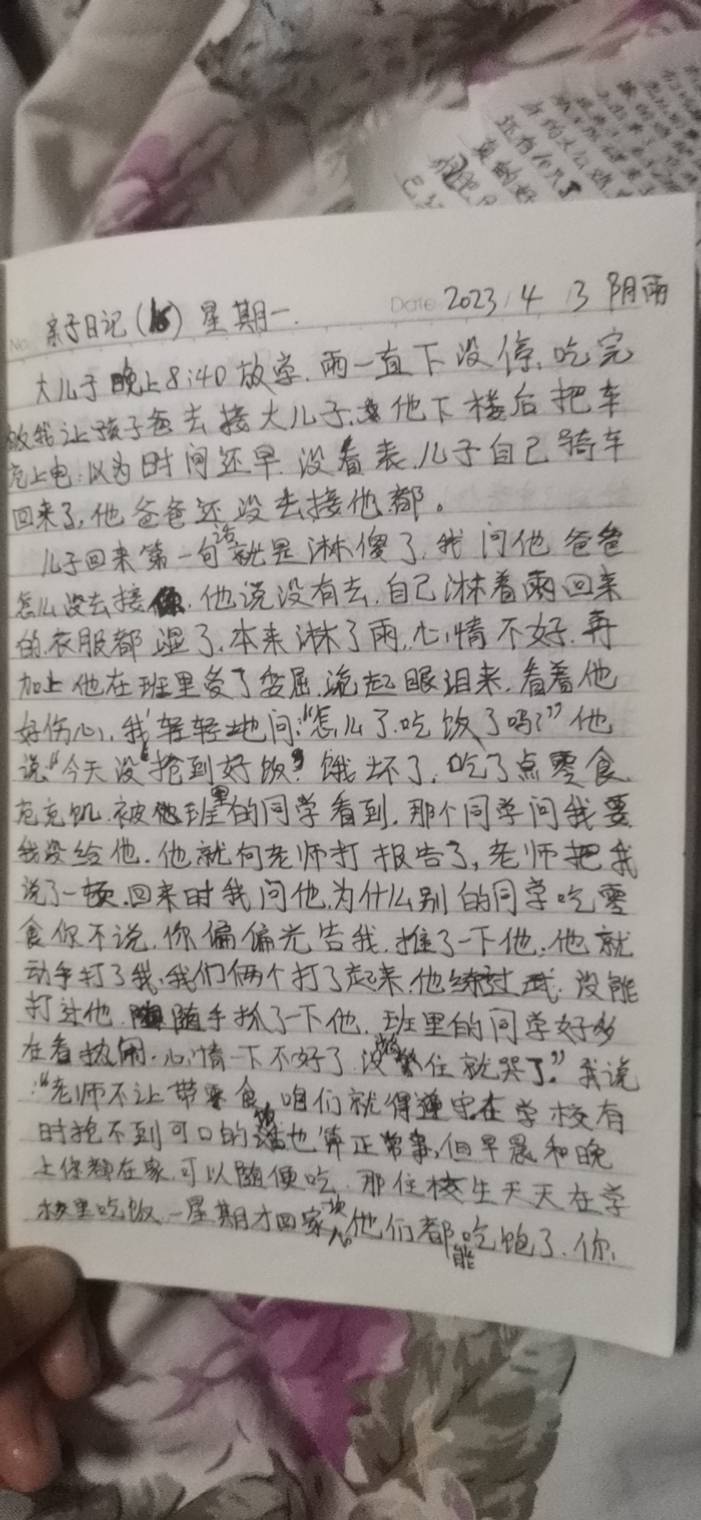 亲子日记(16) 星期一. Date 2023 4 3 阴雨
大儿子晚上8:40放学.雨一直下没停.吃完
饭我让孩子爸去接大儿子.他下楼后把车
充上电.以为时间还早.没看表.儿子自己骑车
回来了,他爸爸还没去接他都。
儿子回来第一句话就是淋傻了.我问他爸爸
怎么没去接你.他说没有去.自己淋着雨回来
的.衣服都湿了.本来淋了雨,心情不好.再
加上他在班里受了委屈.流起眼泪来.看着他
好伤心,我轻轻地问:“怎么了.吃饭了吗?”他
说“今天没“抢到好饭”饿坏了.吃了点零食
充充饥.被他班里的同学看到.那个同学问我要
我没给他.他就向老师打报告了,老师把我
说了一顿.回来时我问他.为什么别的同学吃零
食你不说.你偏偏光告我.推了一下他.他就
动手打了我.我们俩个打了起来.他练过武.没能
打过他.随手抓了一下他.班里的同学好多
在看热闹.心情一下不好了.没憋住就哭了.”我说
:“老师不让带零食.咱们就得遵守.在学校有
时抢不到可口的饭也算正常事,但早晨和晚
上你都在家.可以随便吃.那住校生天天在学
校里吃饭.一星期才回家一次.他们都能吃饱了.你
真的好